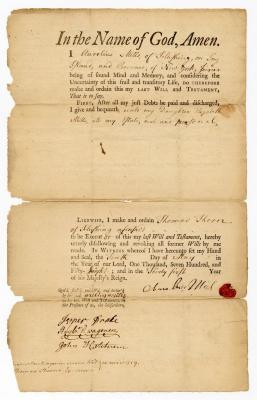 In the Name of God, Amen.
I Aurelius Mills of Flushing, on Long
Island, and Province of New-York, farmer
being of sound Mind and Memory, and considering the
Uncertainty of this frail and transitory Life, DO THEREFORE
make and ordain this my LAST WILL and TESTAMENT,
That is to say,
FIRST, After all my just Debts be paid and discharged,
I give and bequeath, unto my Daughter
Mills, all my Estate, real and personal,
LIKEWISE, I make and ordain Thomas Thorne
of Flushing aforesaid
to be Execut or of this my last Will and Testament, hereby
utterly disallowing and revoking all former Wills by me
made. IN WITNESS whereof I have hereunto set my Hand
and Seal, the Tenth Day of May in
the Year of our Lord, One Thousand, Seven Hundred, and
Fifty-; and in the Thirty first Year
of his Majesty's Reign.
Mills
Sign'd, seal'd, publish'd, and declar'd
by the said
as his last Will and Testament, in
the Presence of us, the Subscribers,
Jasper Drake
John